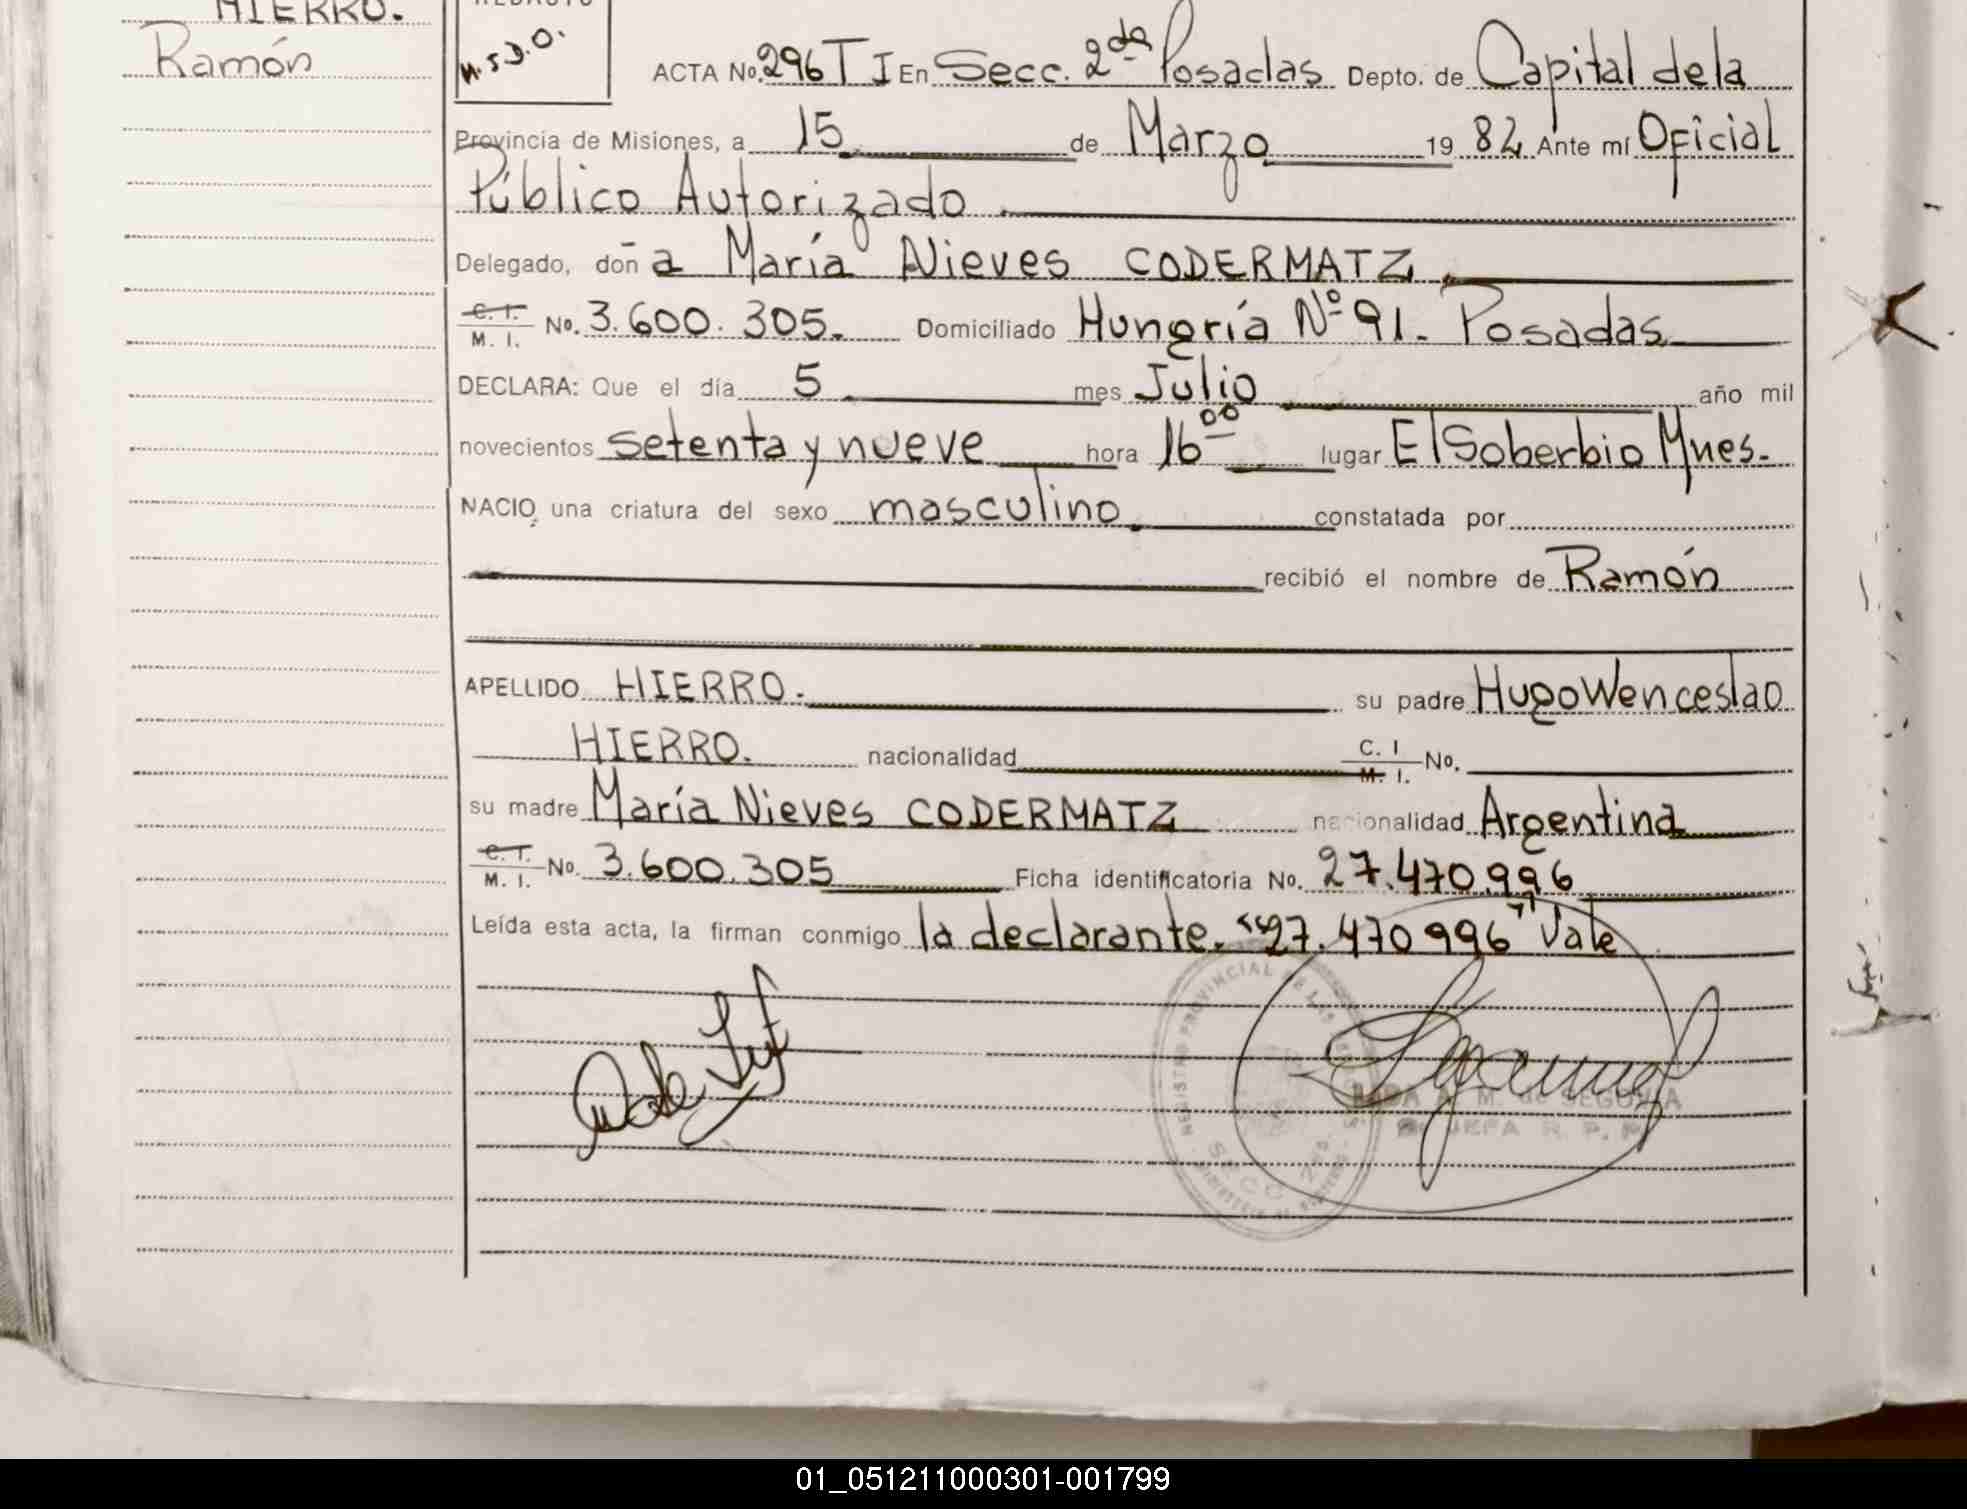 HIERRO.
Ramón
REDACTO
M.S.D.O.
ACTA No. 296 T I En Secc. 2da Posadas Depto. de Capital de la
Provincia de Misiones, a 15 de Marzo 1982 Ante mí Oficial
Público Autorizado
Delegado, doña María Nieves CODERMATZ
C. I. M. I. No. 3.600.305. Domiciliado Hungría Nº 91. Posadas
DECLARA: Que el día 5 mes Julio año mil
novecientos setenta y nueve hora 16 00 lugar El Soberbio Mnes.
NACIO, una criatura del sexo masculino constatada por
recibió el nombre de Ramón
APELLIDO HIERRO. su padre Hugo Wenceslao
HIERRO. nacionalidad C. I M. I. No.
su madre María Nieves CODERMATZ nacionalidad Argentina
C. I. M. I. No. 3.600.305 Ficha identificatoria No. 27.470.996
Leída esta acta, la firman conmigo la declarante. "27.470996" Vale
REGISTRO PROVINCIAL DE LAS
SECC 2da.
A. M. de SEGOVIA
JEFA R. P. P.
01_051211000301-001799